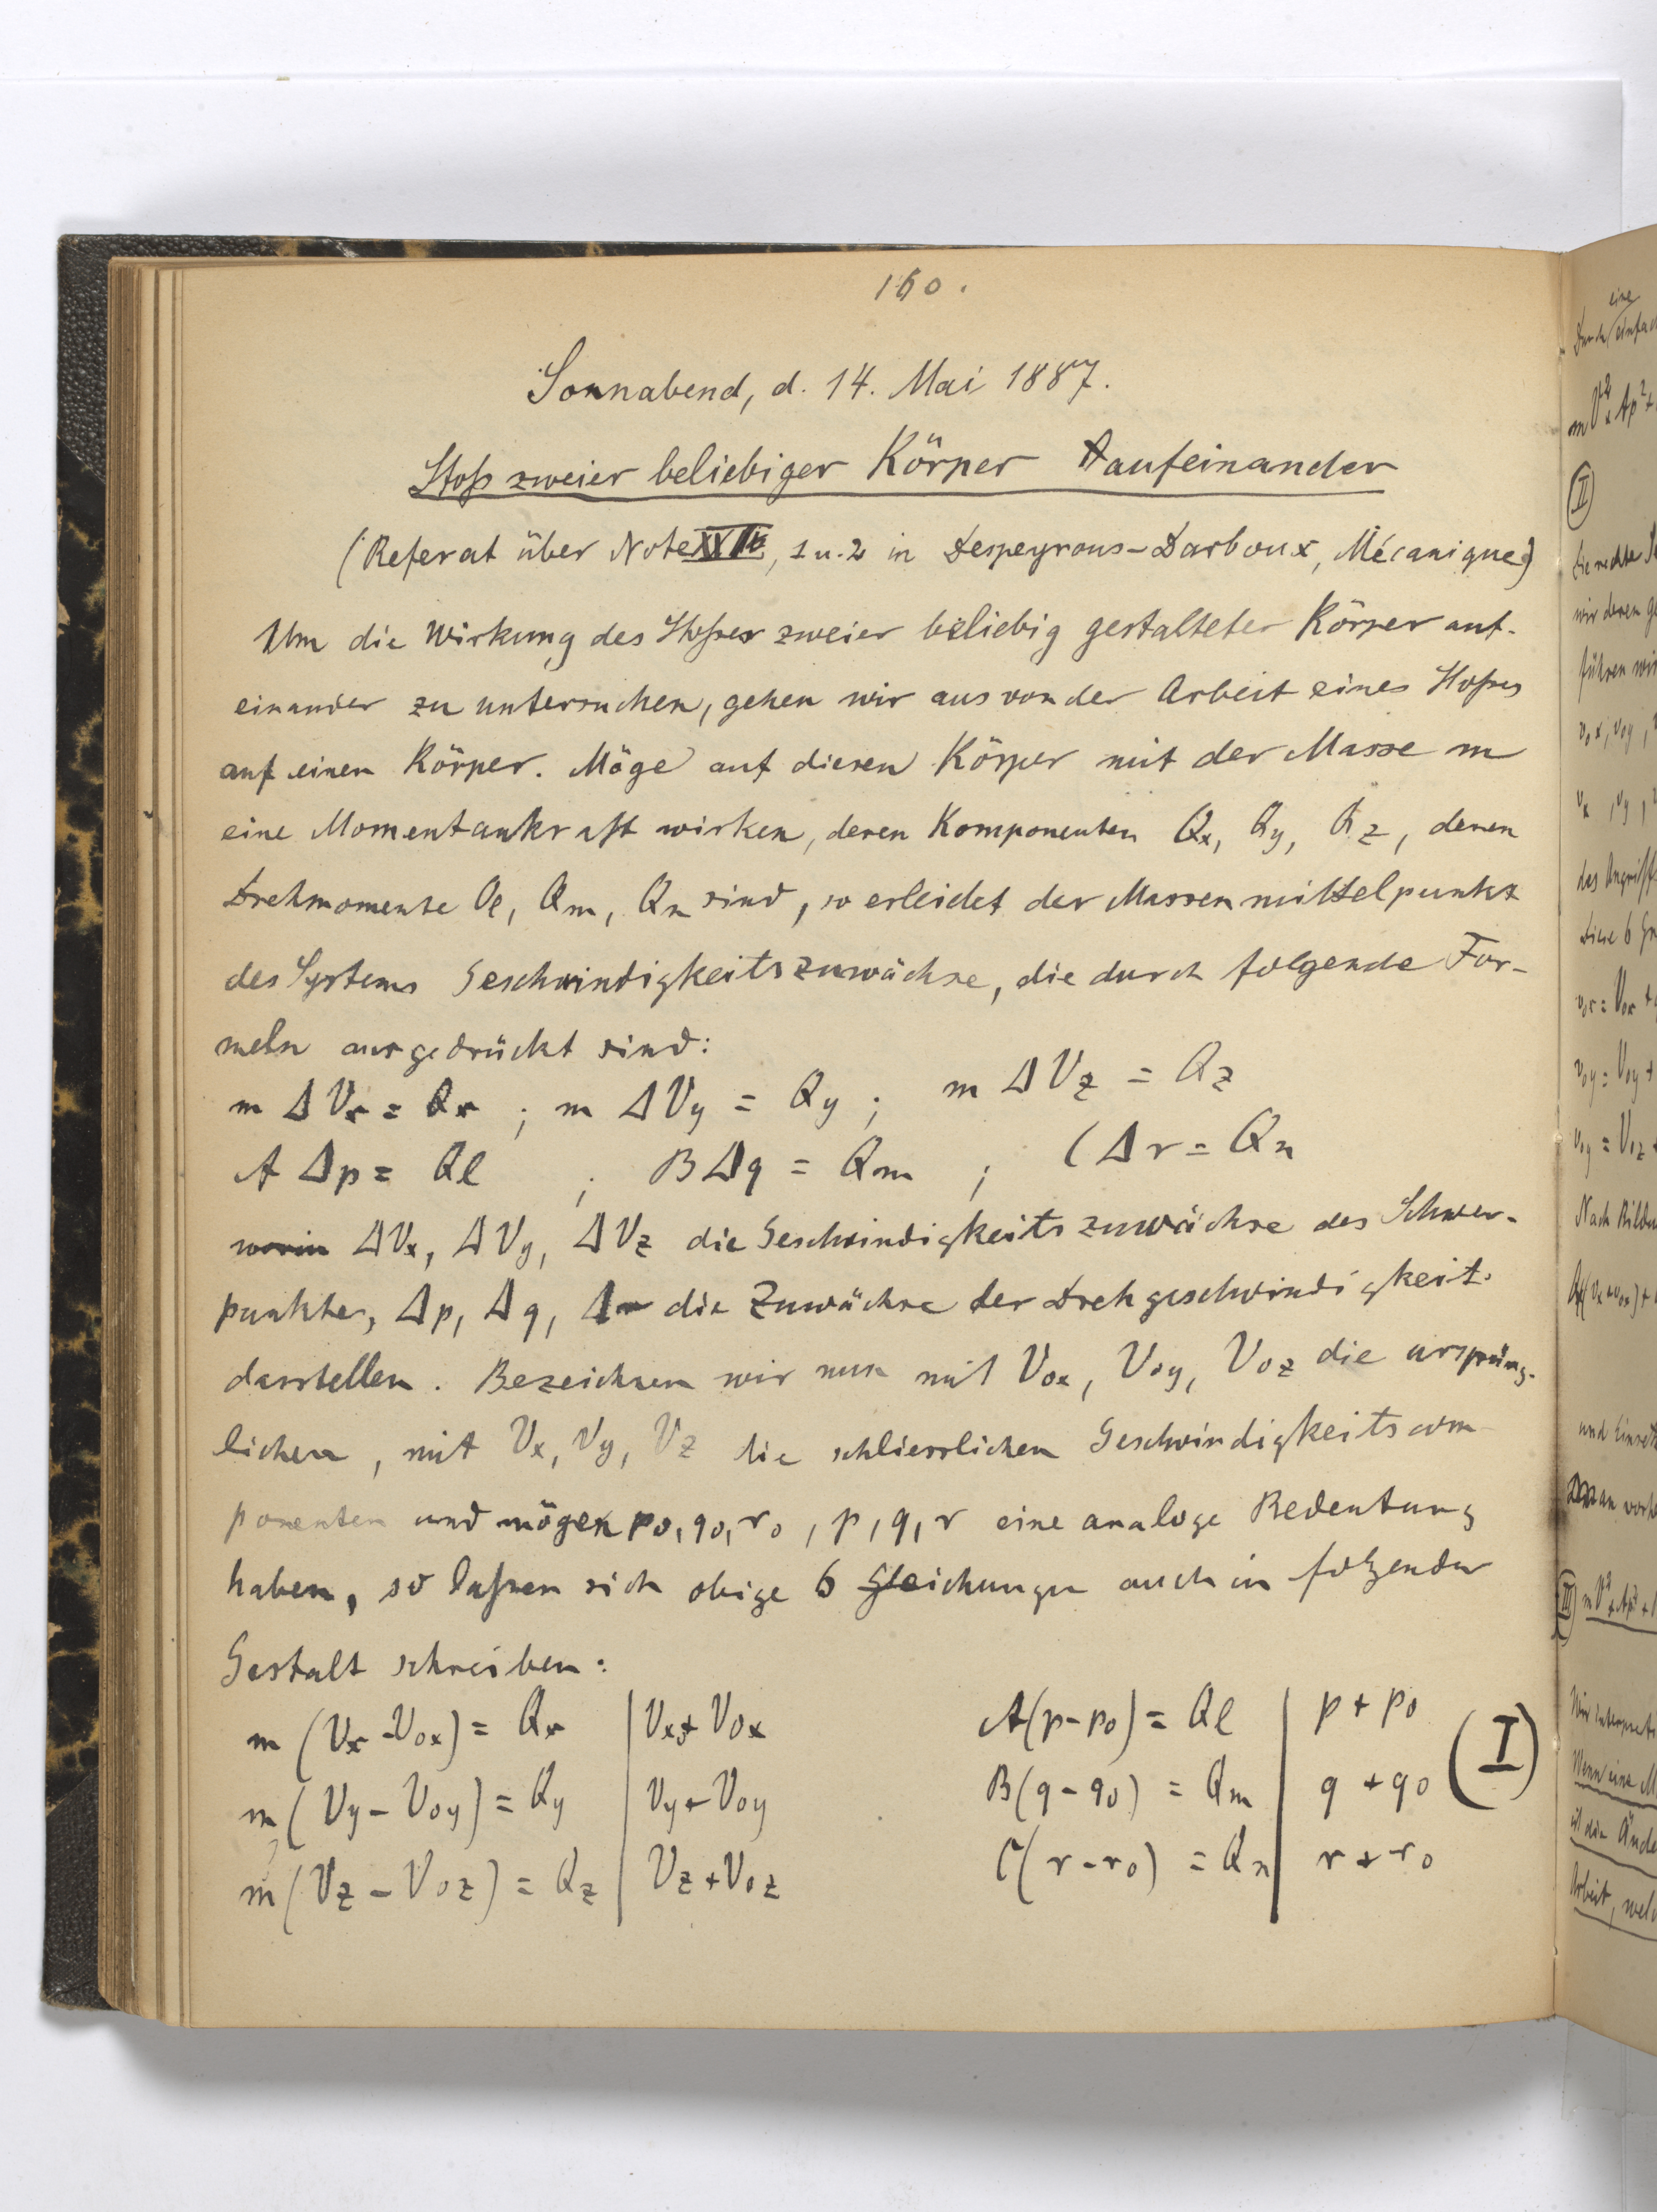 160.
Sonnabend, d. 14. Mai 1887.
Stoß zweier beliebiger Körper aufeinander
(Referat über Note XXIV, 1 u. 2 in Despeyrous-Darboux, Mécanique)
Um die Wirkung des Stoßes zweier beliebig gestalteter Körper auf-
einander zu untersuchen, gehen wir aus von der Arbeit eines Stoßes
auf einen Körper. Möge auf diesen Körper mit der Masse m
eine Momentankraft wirken, deren Komponenten Qx, Qy, Qz, deren
Drehmomente Ql, Qm, Qn sind, so erleidet der Massenmittelpunkt
des Systems Geschwindigkeitszuwächse, die durch folgende For-
meln ausgedrückt sind:
m ΔVx = Qx ; m ΔVy = Qy ; m ΔVz = Qz
A Δp = Ql ; B Δq = Qm ; C Δr = Qn
worin ΔVx, ΔVy, ΔVz die Geschwindigkeitszuwächse des Schwer-
punktes, Δp, Δq, Δr die Zuwächse der Drehgeschwindigkeit
darstellen. Bezeichnen wir nun mit Vox, Voy, Voz die ursprüng-
lichen, mit Vx, Vy, Vz die schliesslichen Geschwindigkeitscom-
ponenten und mögen po, qo, ro, p, q, r eine analoge Bedeutung
haben, so laßen sich obige 6 Gleichungen auch in folgender
Gestalt schreiben:
m (Vx - Vox) = Qx | Vx + Vox A(p - po) = Ql | p + po
m (Vy - Voy) = Qy | Vy + Voy B(q - qo) = Qm | q + qo (I)
m (Vz - Voz) = Qz | Vz + Voz C(r - ro) = Qn | r + ro
eine
(II)
die rechte
wir deren
führen wir
vox, voy,
vx, vy,
des Angriffs
Diese 6
vox = Vox +
voy = Voy +
= Voz +
und
(III)
Wenn eine M
ist die Ände
Arbeit, welc